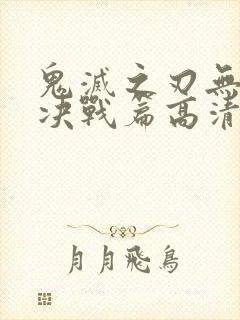 鬼滅之刃無
决戰篇高清
月月飛鳥